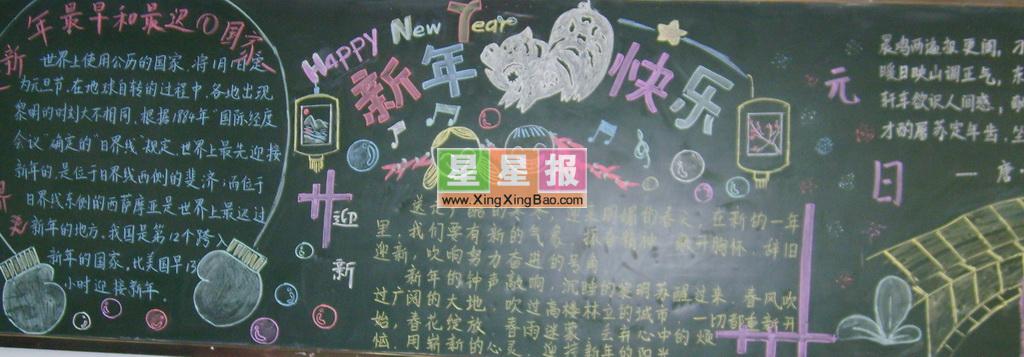 年最早和最迟的国家
新
世界上使用公历的国家,将1月1日定
为元旦节,在地球自转的过程中,各地出现
黎明的时刻大不相同,根据1884年"国际经度
会议"确定的"日界线"规定,世界上最先迎接
新年的,是位于日界线西侧的斐济;而位于
日界线东侧的西萨摩亚是世界上最迟过
新年的地方。我国是第12个跨入
新年的国家,比美国早13
小时迎接新年。
HAPPY New Year
新年快乐
星星报
www.XingXingBao.com
迎
新
在新的一年
里,我们要有新的气象,
敞开胸怀,辞旧
迎新,吹响努力奋进的号角
新年的钟声敲响,沉睡的黎明苏醒过来,春风吹
过广阔的大地,吹过高楼林立的城市,一切都重新开
始,春花绽放,春雨迷蒙,丢弃心中的烦
恼,用崭新的心灵,迎接新年的阳光
元
日
晨鸡两遍报更阑,
暖日映山调正气,东
轩车欲识人间感,
才酌屠苏定年齿,坐
——唐·